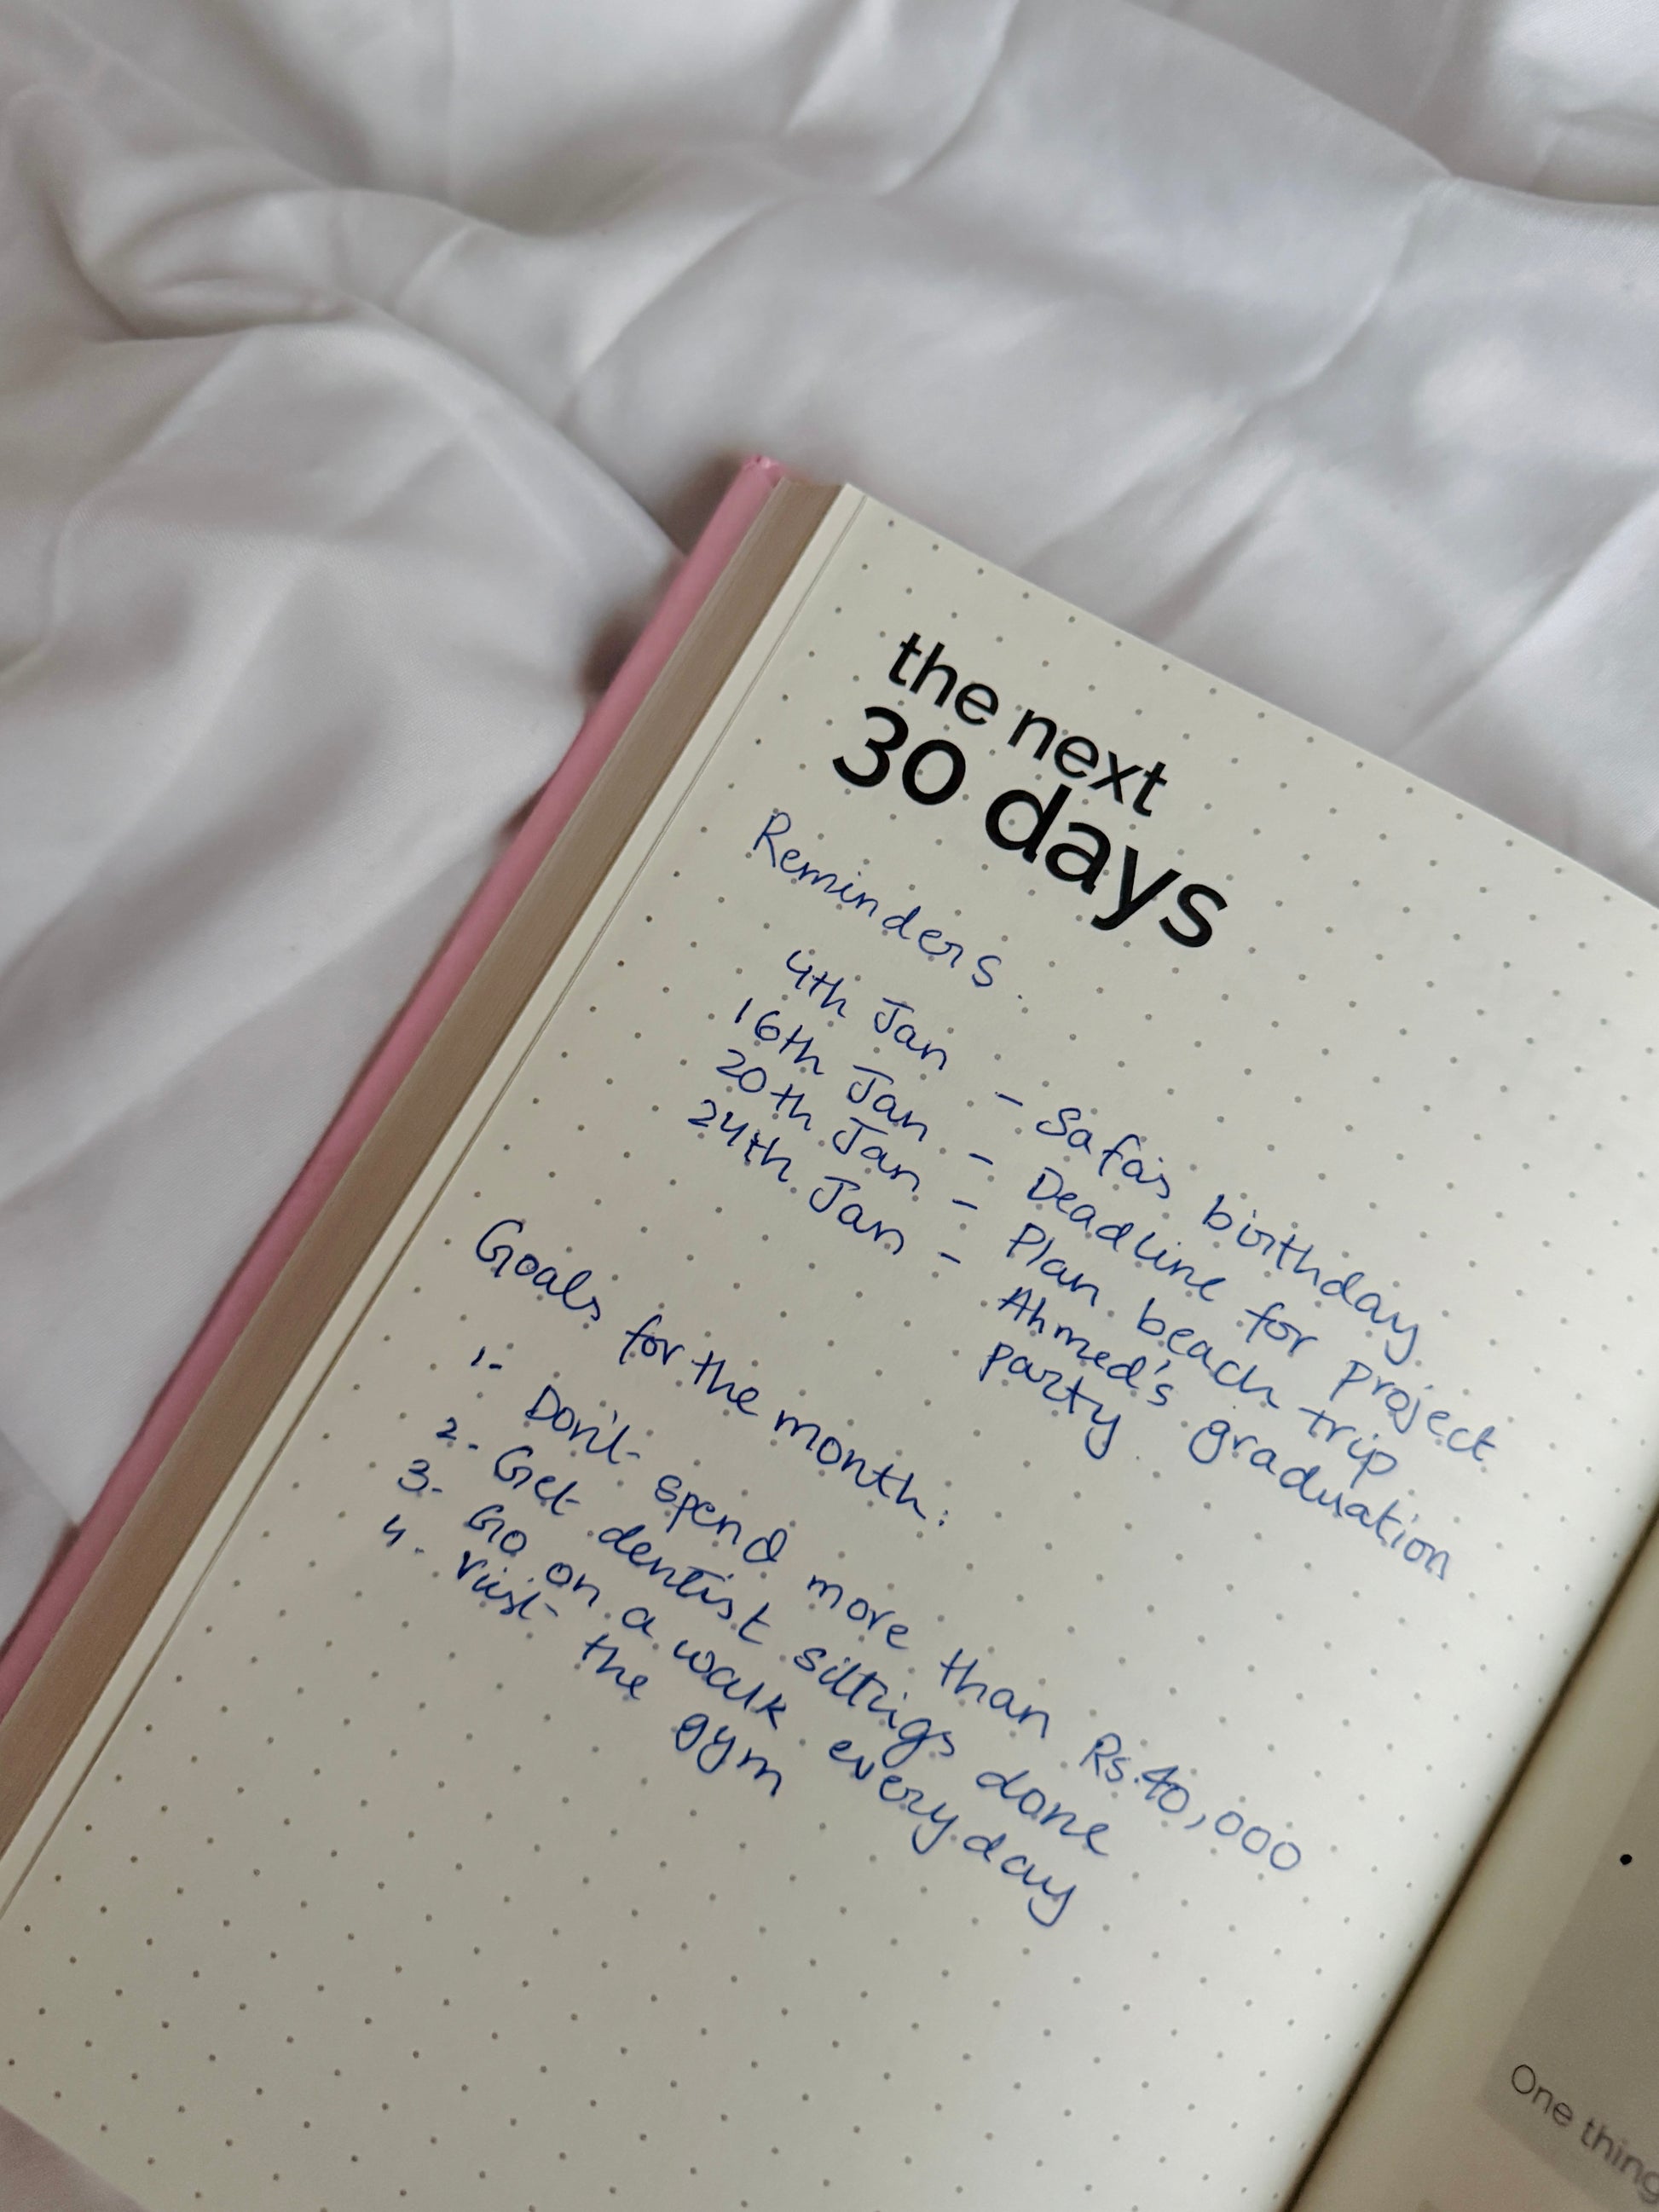 the next
30 days
Reminders.
4th Jan - Safa's birthday
16th Jan - Deadline for project
20th Jan - Plan beach trip
24th Jan - Ahmed's graduation
party
Goals for the month:
1- Don't spend more than Rs.40,000
2- Get dentist sittings done
3- Go on a walk everyday
4- Visit the gym
One thing